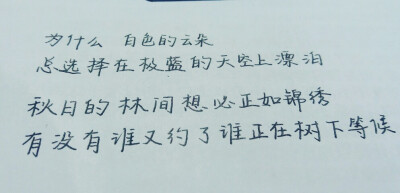 为什么 白色的云朵
总选择在极蓝的天空上漂泊
秋日的林间想必正如锦绣
有没有谁又约了谁正在树下等候